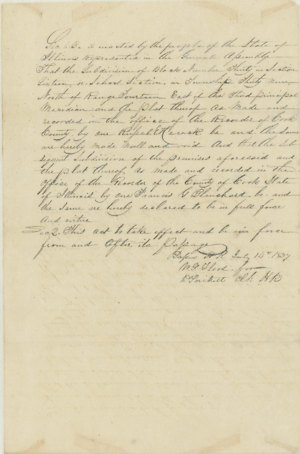 Be it enacted by the people of the State of
Illinois represented in the General Assembly
That the Subdivision of Block Number Thirty in Section
Sixteen, a School Section in Township Thirty nine
North of Range Fourteen East of the Third principal
Meridian and the plat thereof as made and
recorded in the office of the Recorder of Cook
County by one be and the same
are hereby made Null and void And that the sub
sequent Subdivision of the premises aforesaid and
the plat thereof as made and recorded in the
office of the Recorder of the County of Cook State
of Illinois by one Francis C. be and
the same are hereby declared to be in full force
and virtue
2 This act to take effect and be in force
from and after its passage
July 14th 1837
H R